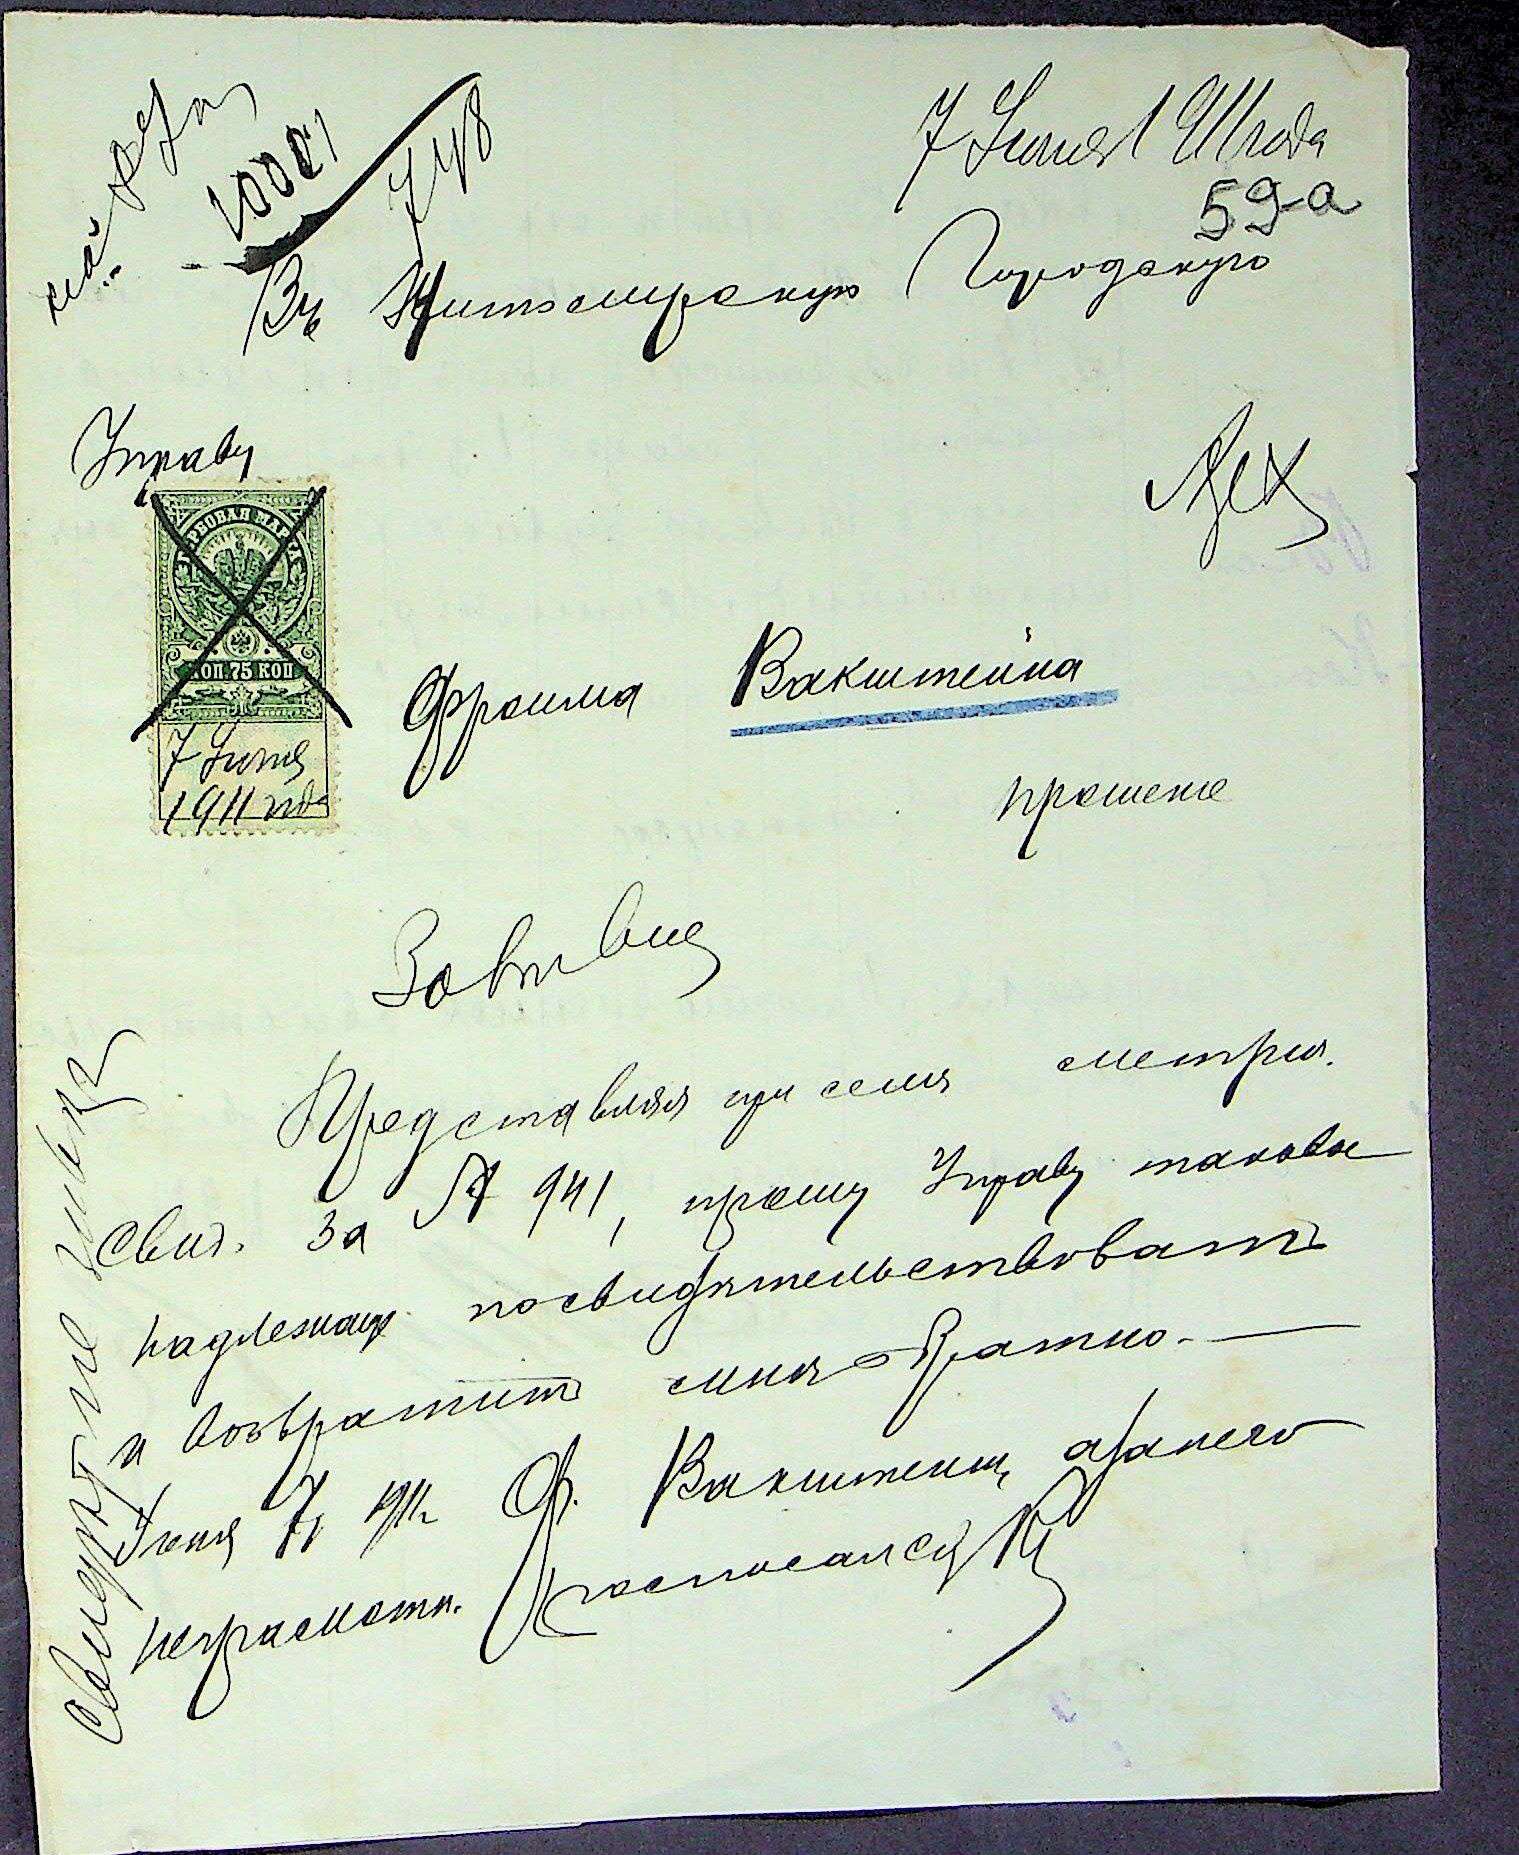 7 Іюня 1911 года
59-а
7418
Въ Житомирскую Городскую
Управу
ГЕРБОВАЯ МАРКА
КОП. 75 КОП
7 Іюня
1911 года
Фроима Вакштейна
прошеніе
Представляя при семъ метрич.
свид. за № 941, прошу Управу таковое
надлежаще посвидѣтельствовать
и возвратить мнѣ обратно.
Іюня 7, 1911 г. Ф. Вакштейнъ, а за него
неграмотн. росписался